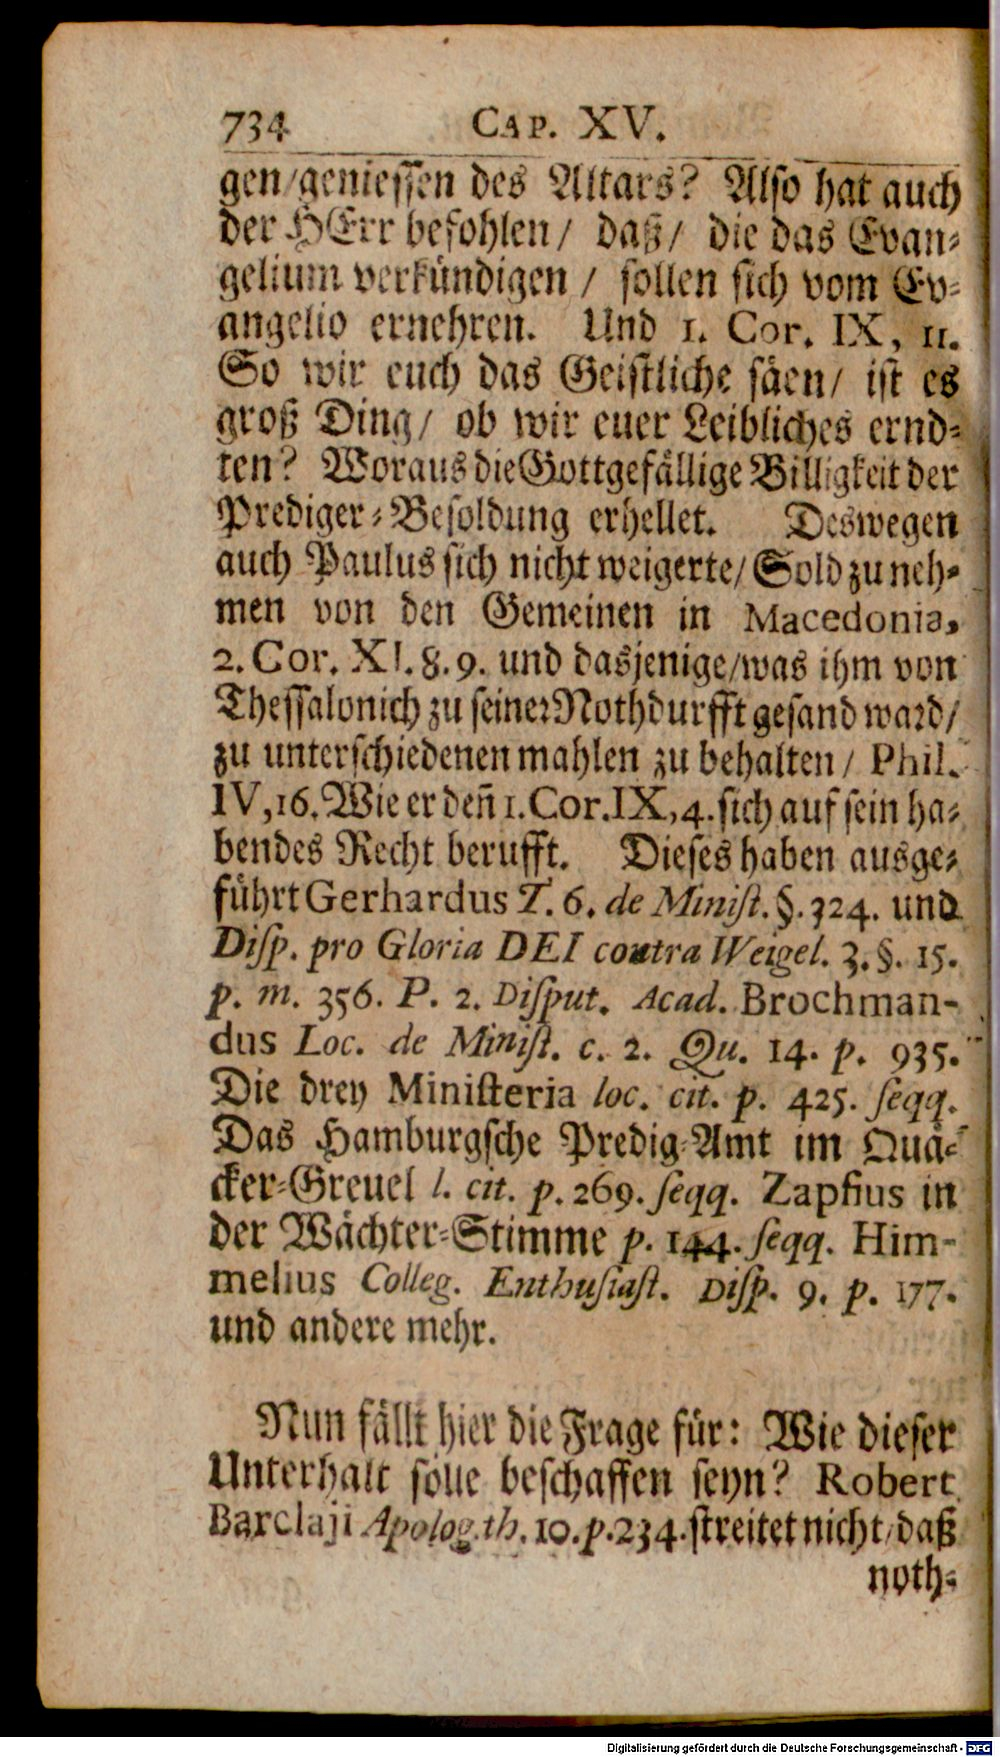 734 CAP. XV.
gen/geniessen des Altars? Also hat auch
der HErr befohlen/ daß/ die das Evan-
gelium verkündigen / sollen sich vom Ev-
angelio ernehren. Und 1. Cor. IX, 11.
So wir euch das Geistliche säen/ ist es
groß Ding/ ob wir euer Leibliches ernd-
ten? Woraus die Gottgefällige Billigkeit der
Prediger-Besoldung erhellet. Deswegen
auch Paulus sich nicht weigerte/ Sold zu neh-
men von den Gemeinen in Macedonia,
2. Cor. XI. 8. 9. und dasjenige/was ihm von
Thessalonich zu seiner Nothdurfft gesand ward/
zu unterschiedenen mahlen zu behalten / Phil.
IV, 16. Wie er deñ 1. Cor. IX, 4. sich auf sein ha-
bendes Recht berufft. Dieses haben ausge-
führt Gerhardus T. 6. de Minist. §. 324. und
Disp. pro Gloria DEI contra Weigel. 3. §. 15.
p. m. 356. P. 2. Disput. Acad. Brochman-
dus Loc. de Minist. c. 2. Qu. 14. p. 935.
Die drey Ministeria loc. cit. p. 425. seqq.
Das Hamburgsche Predig-Amt im Quä-
cker-Greuel l. cit. p. 269. seqq. Zapfius in
der Wächter-Stimme p. 144. seqq. Him-
melius Colleg. Enthusiast. Disp. 9. p. 177.
und andere mehr.
Nun fällt hier die Frage für: Wie dieser
Unterhalt solle beschaffen seyn? Robert
Barclaji Apolog. th. 10. p. 234. streitet nicht/daß
noth-
Digitalisierung gefördert durch die Deutsche Forschungsgemeinschaft - DFG